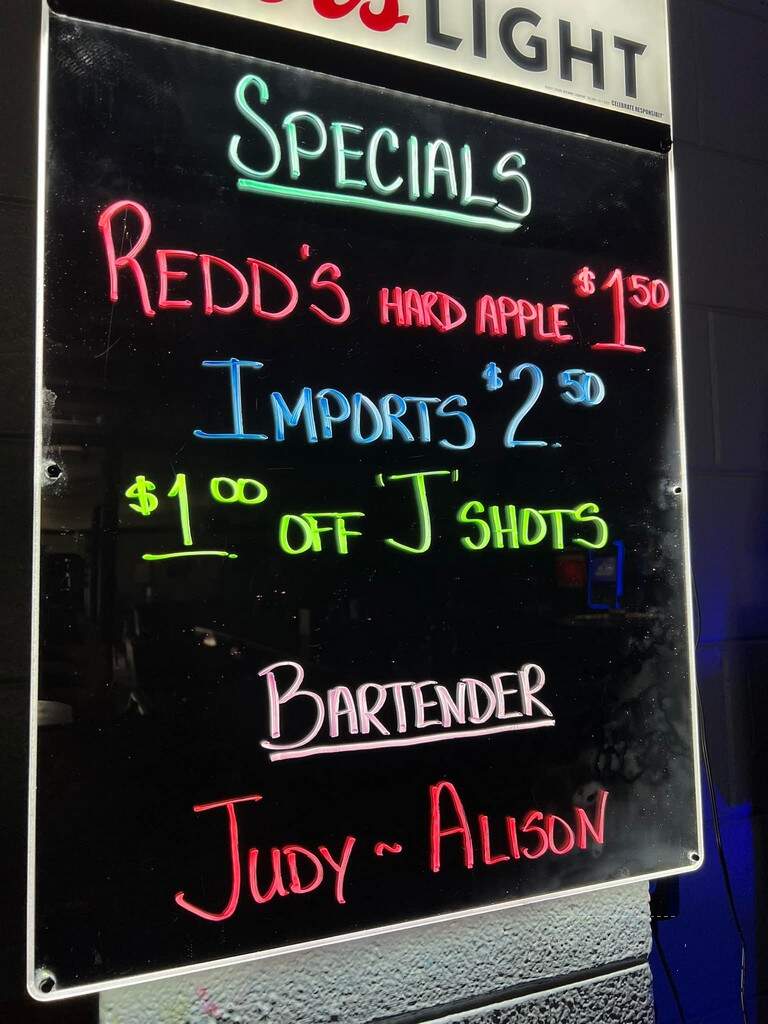 LIGHT
CELEBRATE RESPONSIBLY
SPECIALS
REDD'S HARD APPLE $1.50
IMPORTS $2.50
$1.00 OFF "J" SHOTS
BARTENDER
JUDY ~ ALISON